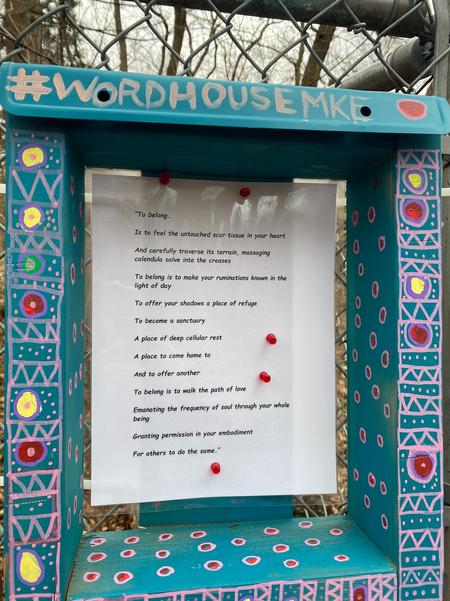 #WORDHOUSEMKE
"To belong..
Is to feel the untouched scar tissue in your heart
And carefully traverse its terrain, massaging
calendula salve into the creases
To belong is to make your ruminations known in the
light of day
To offer your shadows a place of refuge
To become a sanctuary
A place of deep cellular rest
A place to come home to
And to offer another
To belong is to walk the path of love
Emanating the frequency of soul through your whole
being
Granting permission in your embodiment
For others to do the same."